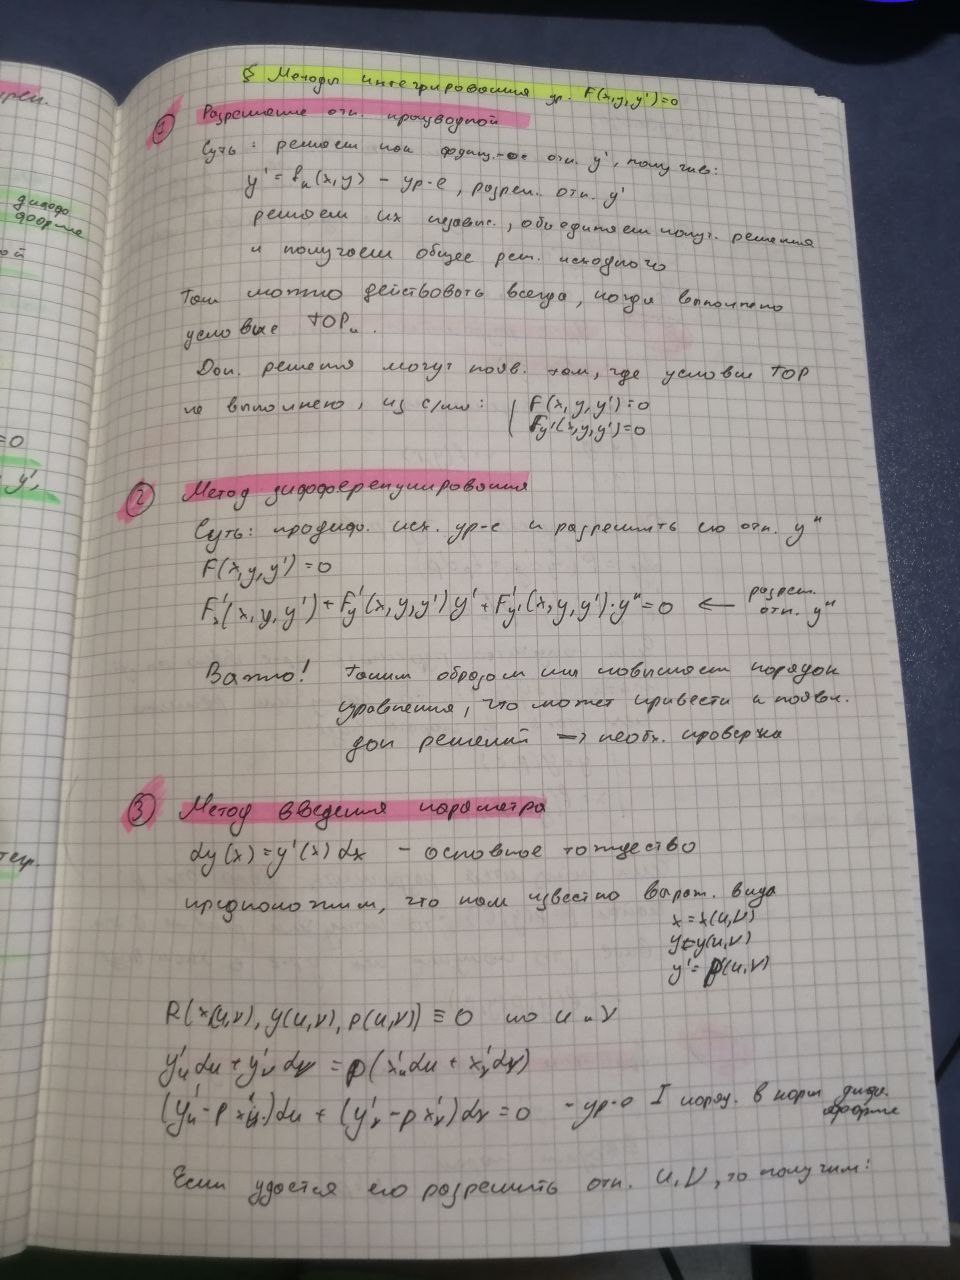 § Методы интегрирования ур. F(x,y,y')=0
① Разрешение отн. производной
Суть: решаем как отн. y', получив:
y' = fₖ(x,y) – ур-е, разреш. отн. y'
решаем их независ., объединяем получ. решения
и получаем общее реш. исходного
Так можно действовать всегда, когда выполнено
условие ТОР
Доп. решения могут появ. там, где условие ТОР
не выполнено, из с/мы: { F(x,y,y')=0
F'y'(x,y,y')=0
② Метод дифференцирования
Суть: продифф. исх. ур-е и разрешить его отн. y"
F(x,y,y')=0
F'x(x,y,y')+F'y(x,y,y')y'+F'y'(x,y,y')·y"=0 ← разреш.
отн. y"
Важно! Таким образом мы повышаем порядок
уравнения, что может привести к появл.
доп решений => необх. проверка
③ Метод введения параметра
dy(x)=y'(x)dx – основное тождество
предположим, что нам известно выраж. вида
x=x(u,v)
y=y(u,v)
y'=p(u,v)
R(x(u,v), y(u,v), p(u,v)) ≡ 0 по u и v
y'u du + y'v dv = p(x'u du + x'v dv)
(y'u - p x'u)du + (y'v - p x'v)dv = 0 - ур-е I поряд. в норм дифф.
форме
Если удастся его разрешить отн. u,v, то получим:
дифф
форме
=0
y',